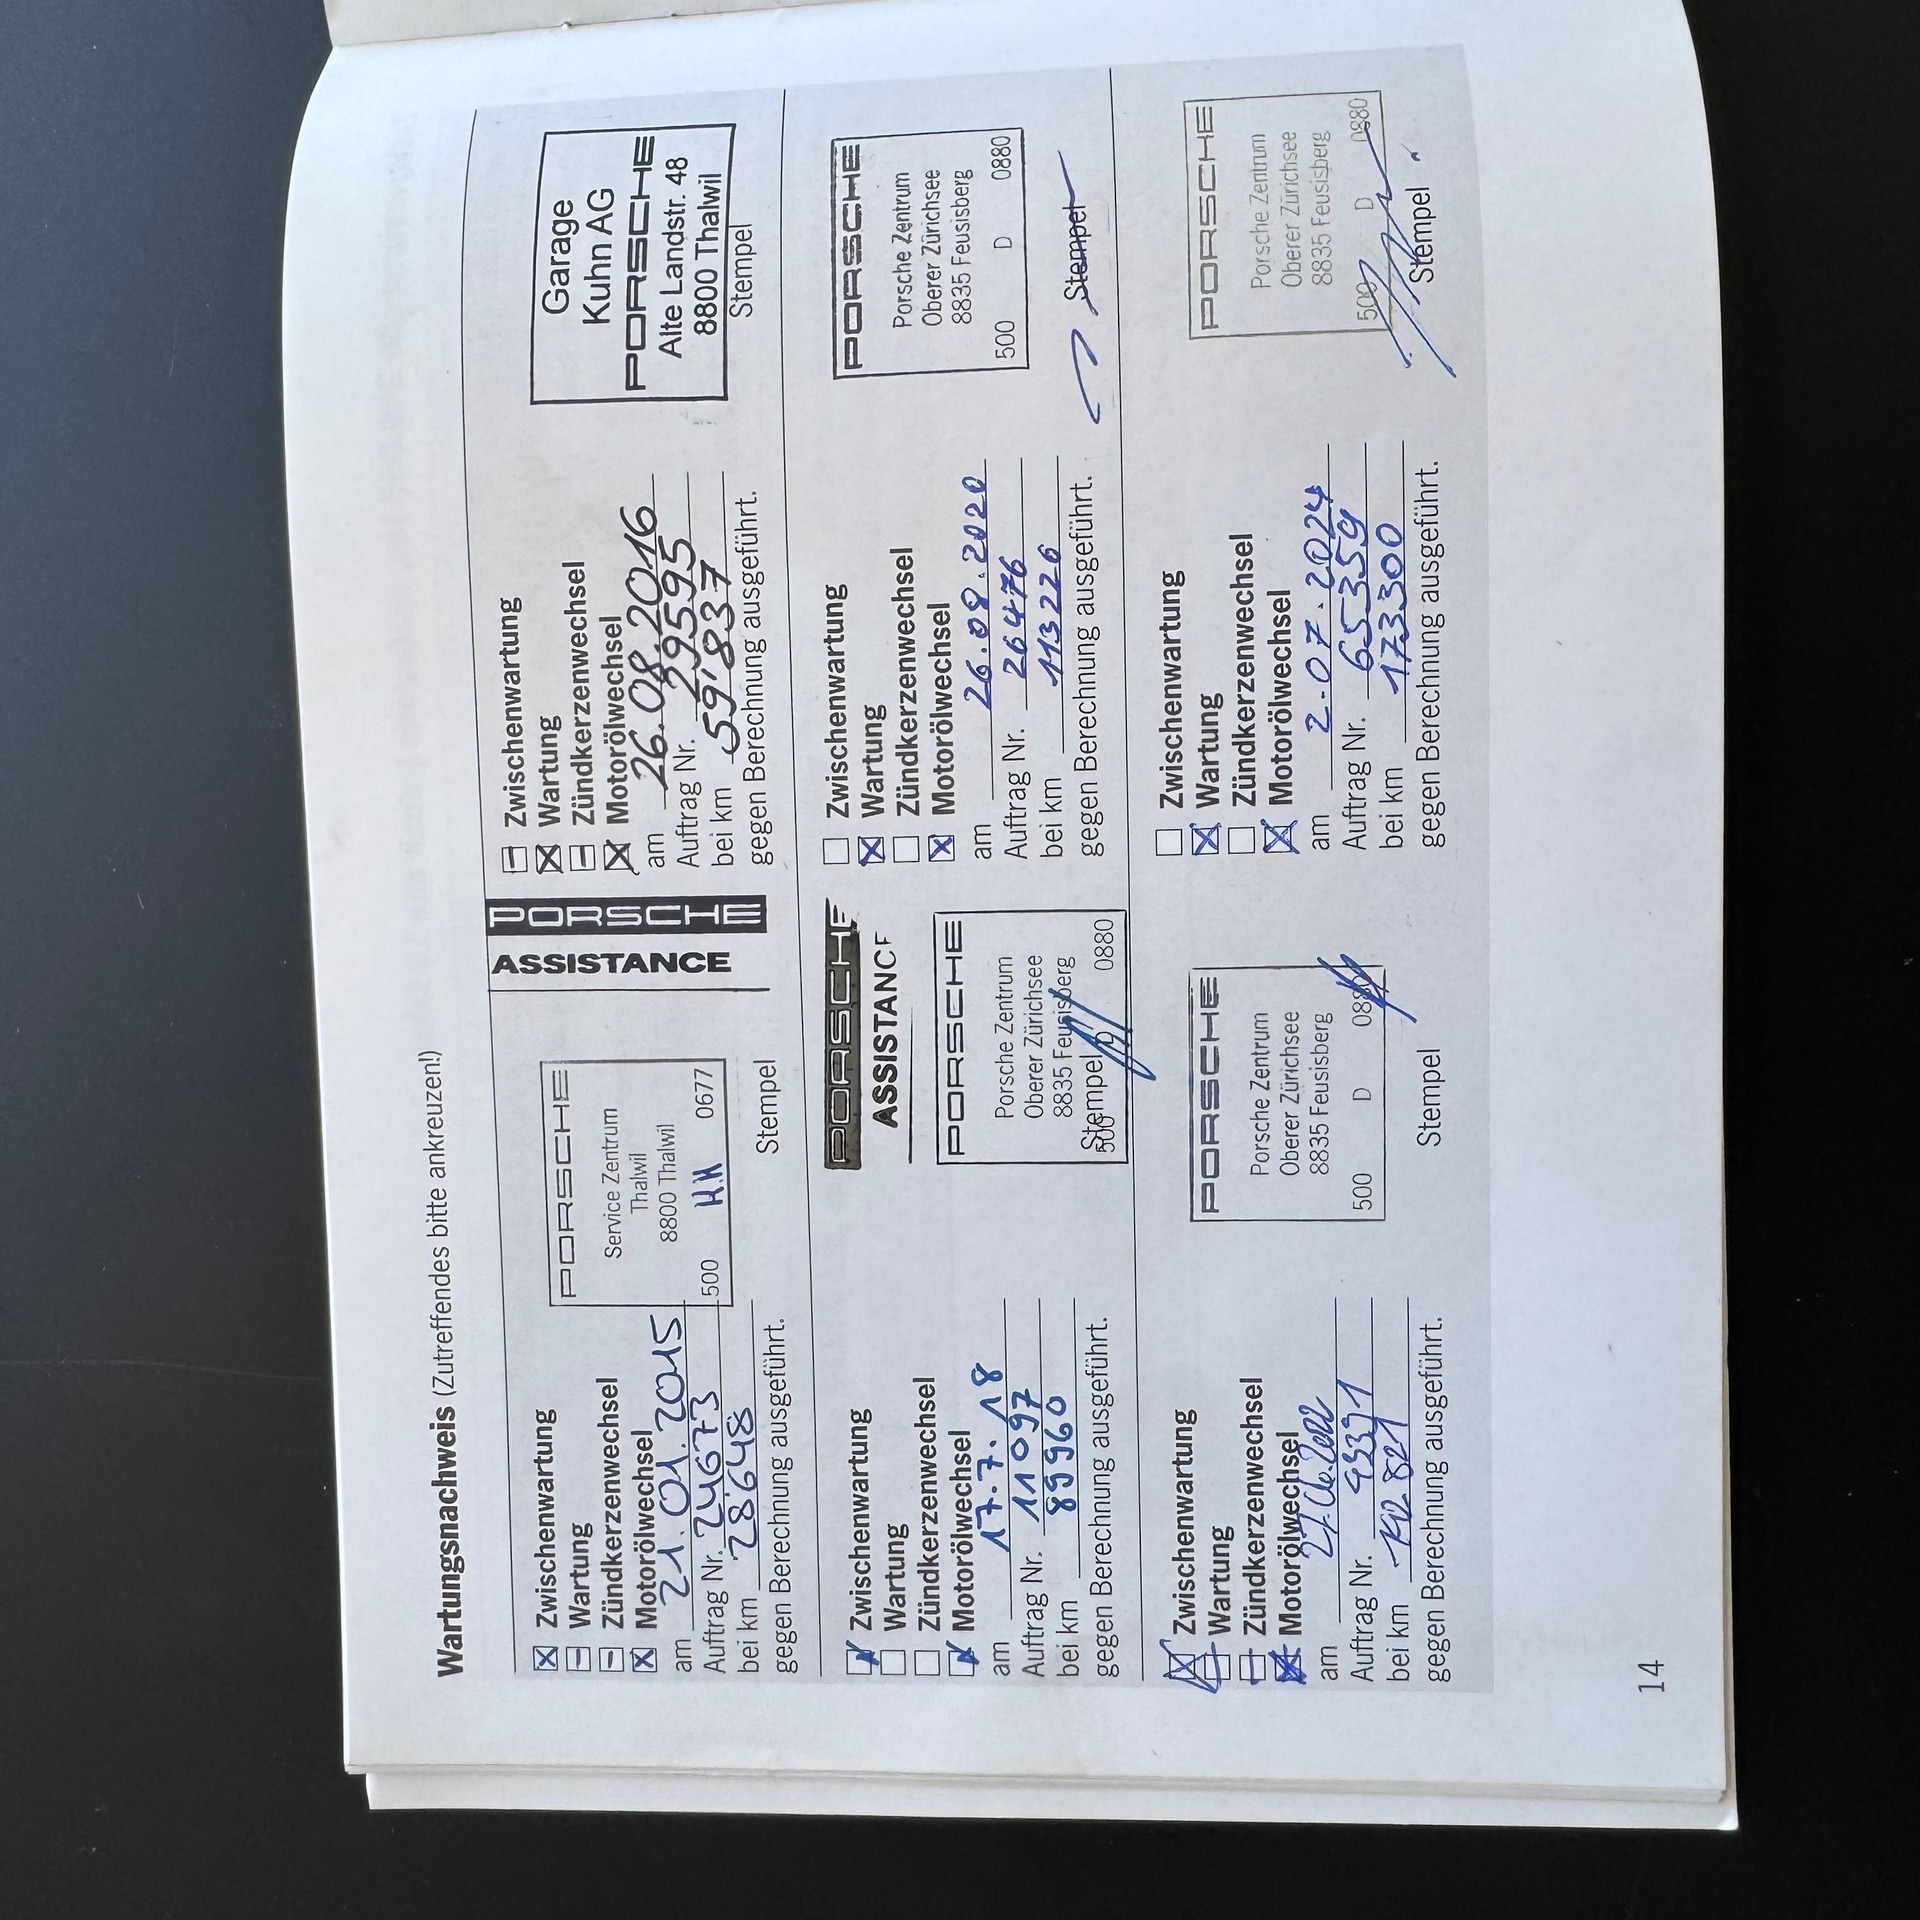 Wartungsnachweis (Zutreffendes bitte ankreuzen!)
Zwischenwartung
Wartung
Zündkerzenwechsel
Motorölwechsel
am 21.01.2015
Auftrag Nr. 24673
bei km 28'648
gegen Berechnung ausgeführt.
PORSCHE
Service Zentrum
Thalwil
8800 Thalwil
500 H.H 0677
Stempel
ASSISTANCE
PORSCHE
Zwischenwartung
Wartung
Zündkerzenwechsel
Motorölwechsel
am 26.08.2016
Auftrag Nr. 29595
bei km 59'837
gegen Berechnung ausgeführt.
Garage
Kuhn AG
PORSCHE
Alte Landstr. 48
8800 Thalwil
Stempel
Zwischenwartung
Wartung
Zündkerzenwechsel
Motorölwechsel
am 17.7.18
Auftrag Nr. 11097
bei km 89960
gegen Berechnung ausgeführt.
PORSCHE
ASSISTANCE
PORSCHE
Porsche Zentrum
Oberer Zürichsee
8835 Feusisberg
Stempel
500 D 0880
Zwischenwartung
Wartung
Zündkerzenwechsel
Motorölwechsel
am 26.08.2020
Auftrag Nr. 26476
bei km 113226
gegen Berechnung ausgeführt.
PORSCHE
Porsche Zentrum
Oberer Zürichsee
8835 Feusisberg
500 D 0880
Stempel
Zwischenwartung
Wartung
Zündkerzenwechsel
Motorölwechsel
am
Auftrag Nr.
bei km 142821
gegen Berechnung ausgeführt.
PORSCHE
Porsche Zentrum
Oberer Zürichsee
8835 Feusisberg
500 D 0880
Stempel
Zwischenwartung
Wartung
Zündkerzenwechsel
Motorölwechsel
am 2.07.2024
Auftrag Nr. 65359
bei km 173300
gegen Berechnung ausgeführt.
PORSCHE
Porsche Zentrum
Oberer Zürichsee
8835 Feusisberg
500 D 0880
Stempel
14